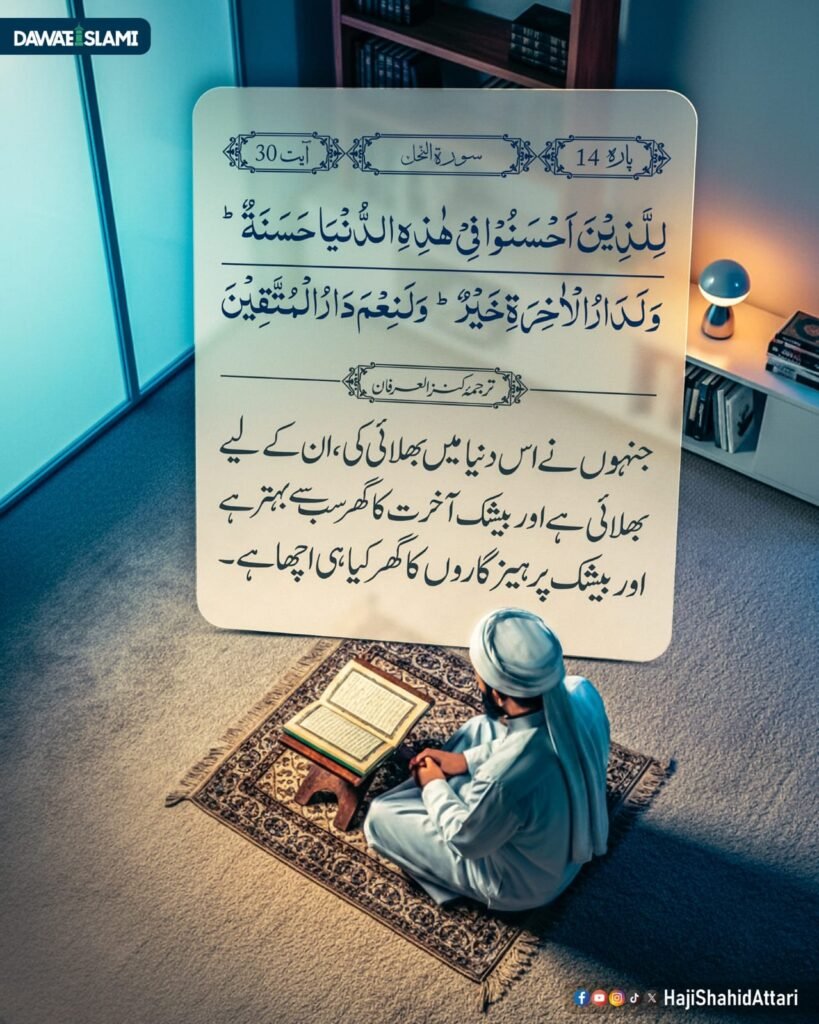 DAWATEISLAMI
پارہ 14 سورۃ النحل آیت 30
لِلَّذِیْنَ اَحْسَنُوْا فِیْ هٰذِهِ الدُّنْیَا حَسَنَةٌ ؕ
وَ لَدَارُ الْاٰخِرَةِ خَیْرٌ ؕ وَ لَنِعْمَ دَارُ الْمُتَّقِیْنَ
ترجمۂ کنز العرفان
جنہوں نے اس دنیا میں بھلائی کی، ان کے لیے
بھلائی ہے اور بیشک آخرت کا گھر سب سے بہتر ہے
اور بیشک پرہیزگاروں کا گھر کیا ہی اچھا ہے۔
HajiShahidAttari